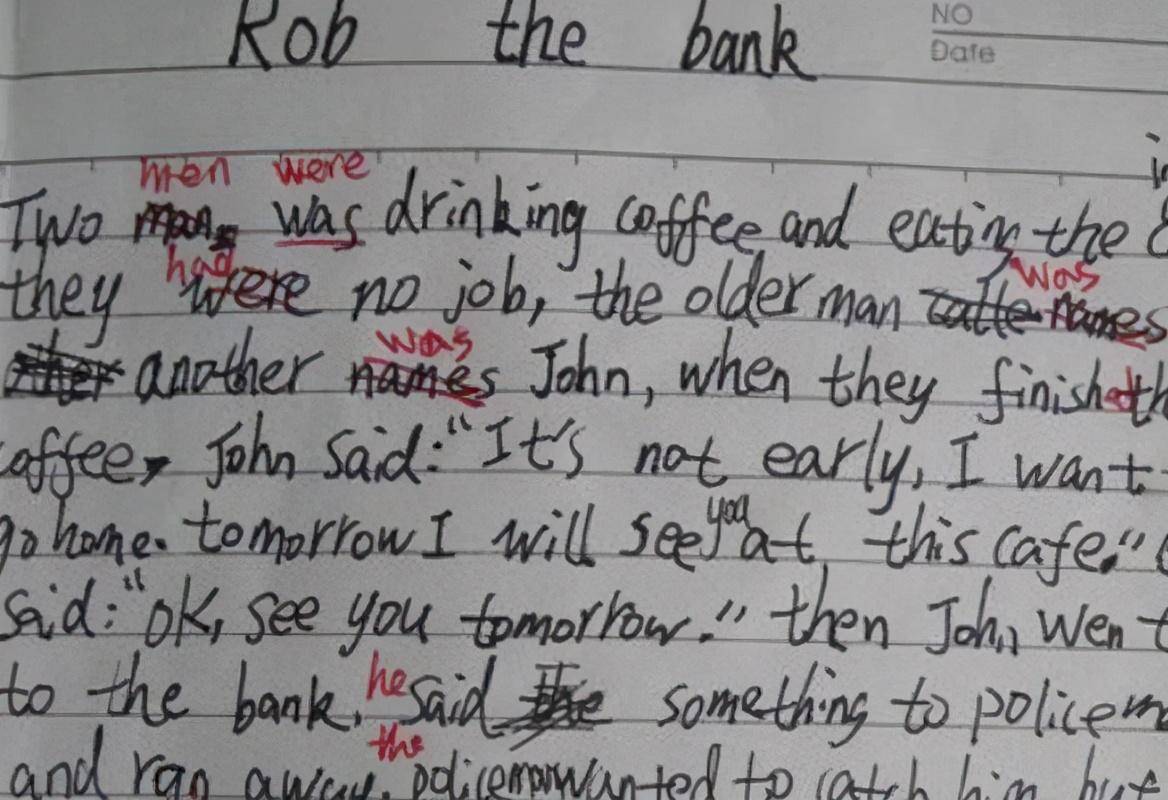 Rob the bank
NO
Date
men were
Two man was drinking coffee and eating the
had was
they were no job, the older man names
was
another names John, when they finished
coffee, John said: "It's not early, I want
go home. tomorrow I will see you at this cafe."
said: "OK, see you tomorrow." then John went
to the bank. he said something to
the
and ran away. policeman wanted to catch him but